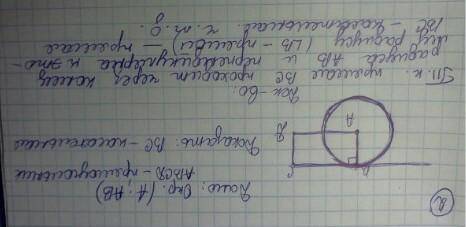 2
Дано: Окр. (A; AB)
ABCD - прямоугольник
Доказать: BC - касательная
Док-во:
Т. к. прямая BC проходит через конец
радиуса AB и перпендикулярна к это-
му радиусу (∠B - прямой) — прямая
BC - касательная. ч. т. д.
A
B
C